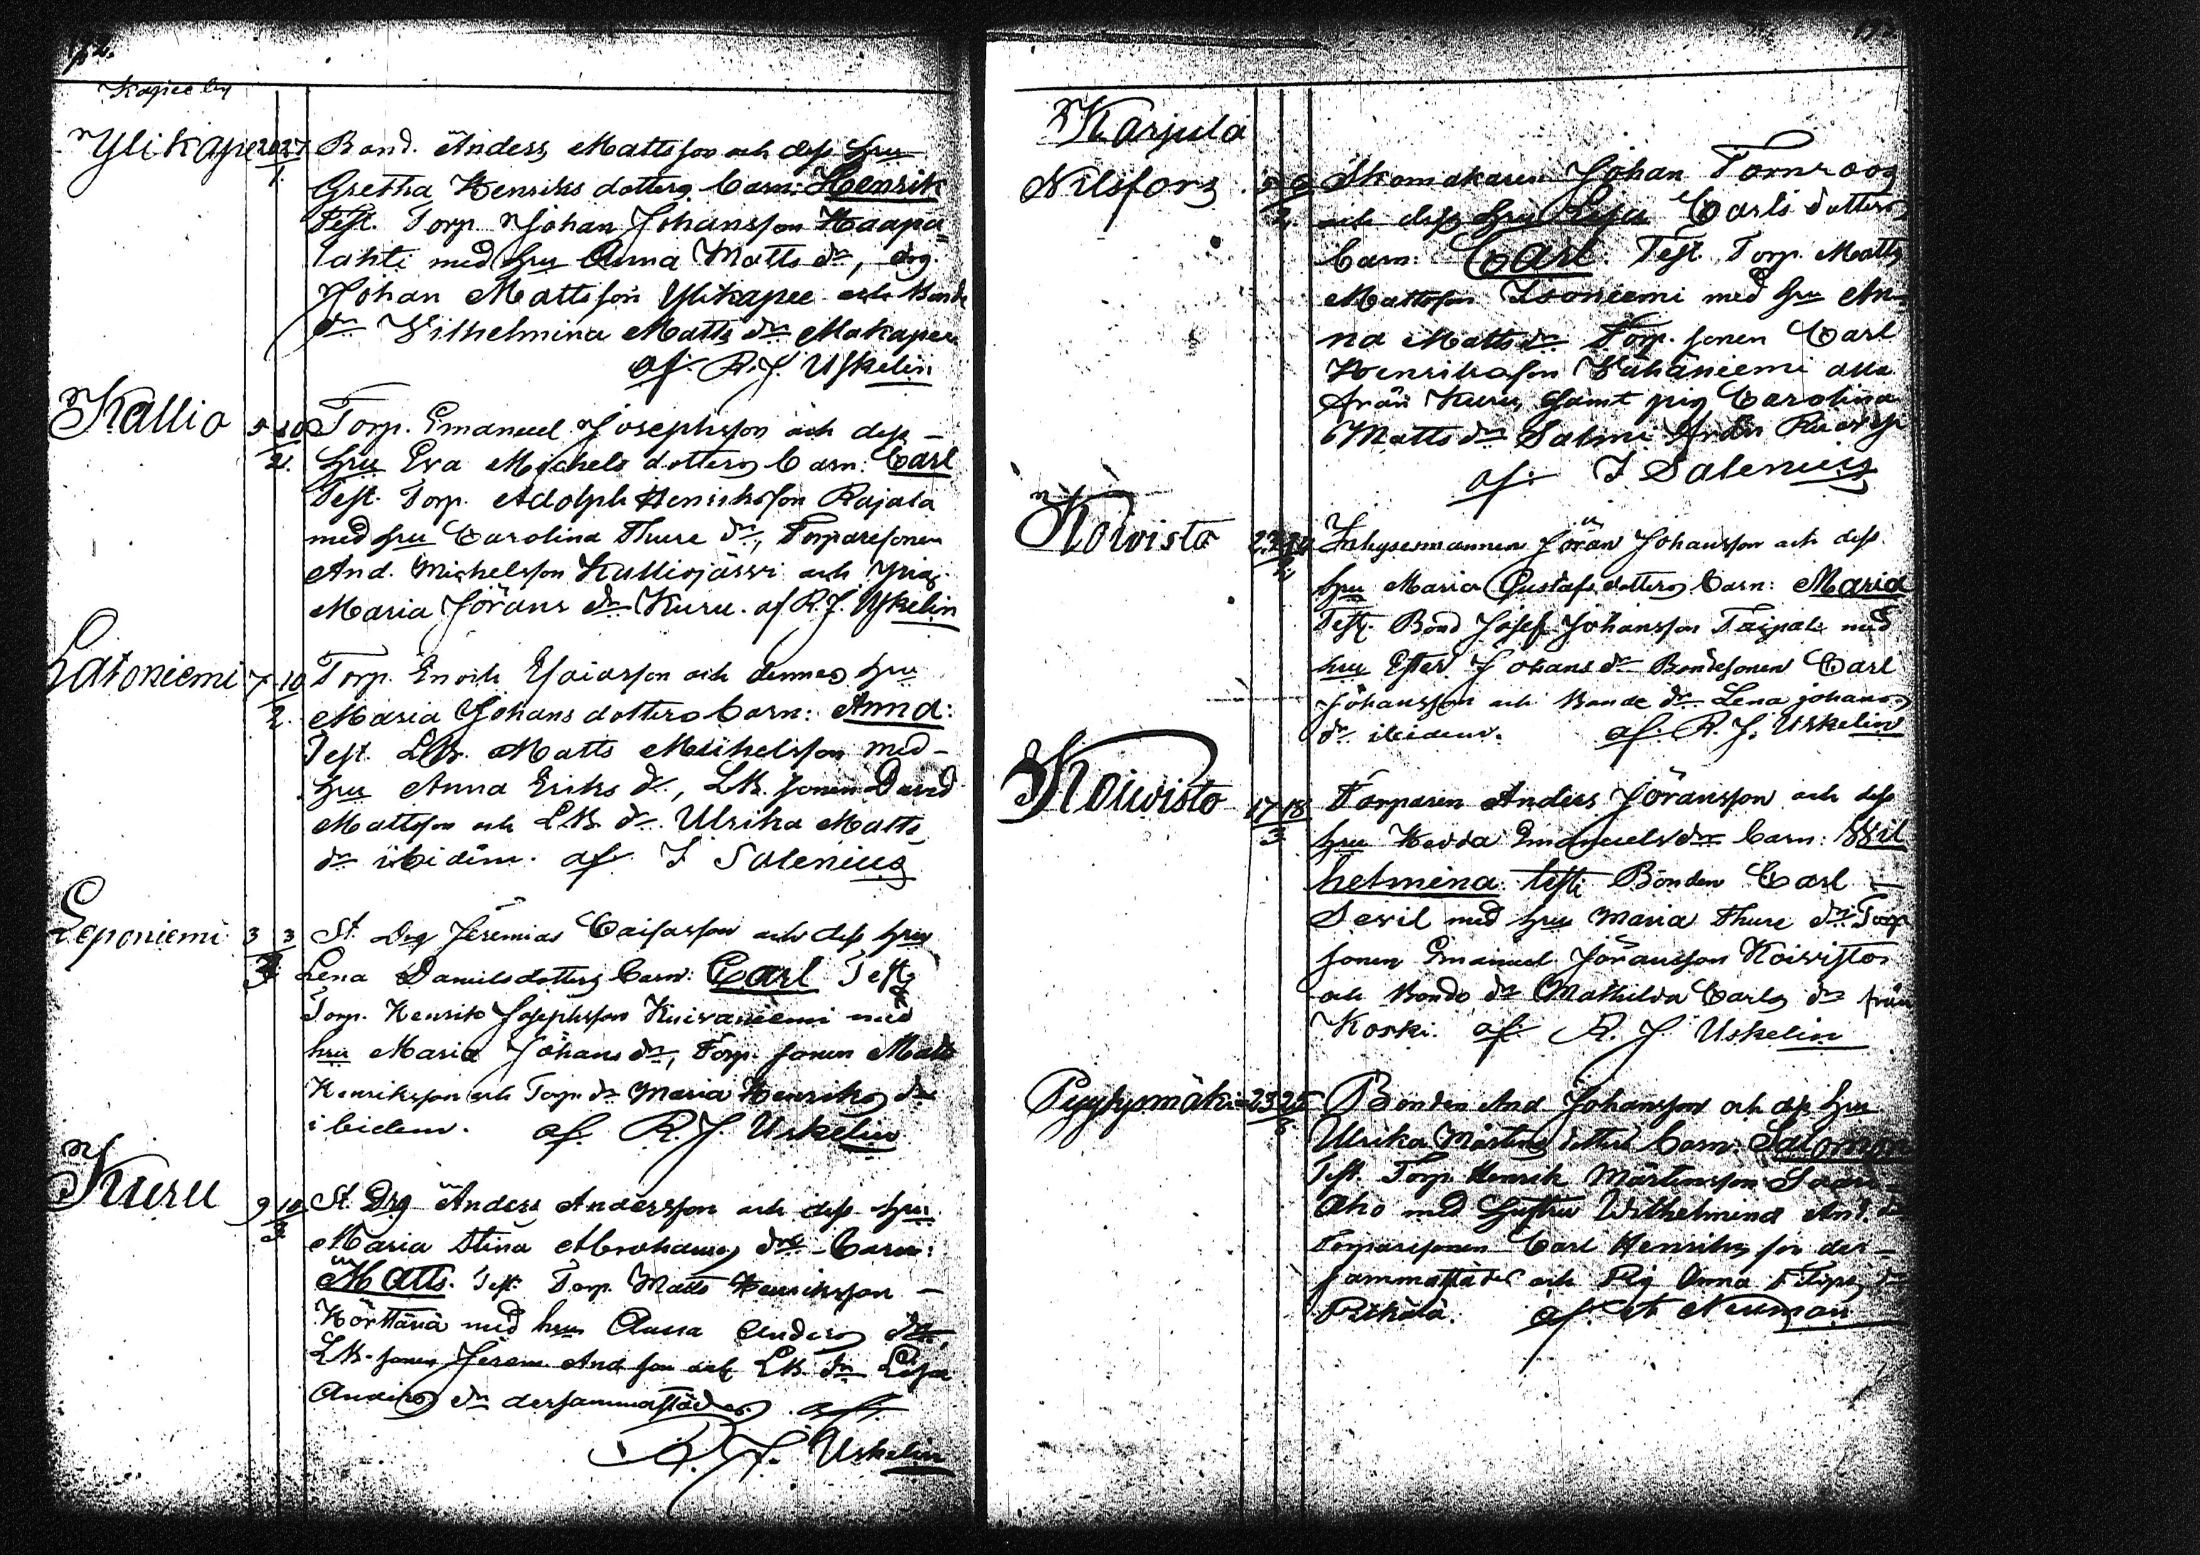 Kapee by
Ylikapee 27/1 Bond. Anders Mattsson och dess hru
Gretha Henriks dotters barn: Henrik
Test. Torp. Johan Johansson Haapa=
lahti med hru Anna Matts dr, drg.
Johan Mattsson Ylikapee och Bonde
dr Wilhelmina Matts dr Alakapee
af. R. J. Uskelin
Kallio 5 10/2. Torp. Emanuel Josephsson och dess –
hru Eva Michels dotters barn: Carl
Test. Torp. Adolph Henriksson Rajala
med hru Carolina Thure dr, Torparesonen
And. Michelsson Kalliojärvi och pig.
Maria Jörans dr Kuru. af R. J. Uskelin
Latoniemi 7 10/2. Torp. Enoch Esaiasson och dennes hru
Maria Johans dotters barn: Anna:
Test. LB. Matts Michelsson med –
hru Anna Eriks dr, LB. sonen David
Mattsson och LB dr Ulrika Matts
dr ibidem. af I Salenius
Leponiemi 3 3/3 St. Drg Jeremias Caisasson och dess hru
Lena Danielsdotters barn: Carl Test
Torp. Henrik Josephsson Kuivaniemi med
hru Maria Johans dr, Torp. sonen Matts
Henriksson och Torp dr Maria Henriks dr
ibidem. af. R. J. Uskelin
Kuru 9 10/3 St. Drg Anders Andersson och dess hru
Maria Stina Abrahams drs Barn:
Matts. Test. Torp. Matts Henriksson –
Hörttänä med hru Anders dr,
LB. sonen Jerem And son och LB. dr Lisa
Anders dr dersammastädes. af.
R. J. Uskelin
Karjula
Nilsfors Skomakaren Johan Törnroos
och dess hru Lisa Carls dotters
barn: Carl. Test. Torp. Matts
Mattsson Isoniemi med hru An-
na Matts dr Torp. sonen Carl
Henriksson Wähäniemi alla
från Kuru, samt pig Carolina
Matts dr Salmi från Ruovesi
af. I Salenius
Koivisto Inhysesmannen Jöran Johansson och dess
hru Maria Gustafs dotters barn: Maria
Test. Bond Josef Johansson Taipale med
hru Ester Johans dr Bondesonen Carl
Johansson och Bonde dr Lena Johans
dr ibidem. af. R. J. Uskelin
Koivisto 17 18/3 Torparen Anders Jöransson och dess
hru Hedda Emanuels drs barn: Wil
helmina. testi Bonden Carl –
Sevil med hru Maria Thure dr Torp
sonen Emanuel Jöransson Koivisto
och Bonde dr Mathilda Carls dr från
Koski. af. R. J. Uskelin
Pyypysmäki Bonden And Johansson och dess hru
Ulrika Mårtens dotters barn: Salomon
Test. Torp. Henrik Mårtensson
Aho med hustru Wilhelmina And. dr
Torparesonen Carl Henriks son der-
sammastädes och Pig Anna Filips dr
af. A Neuman